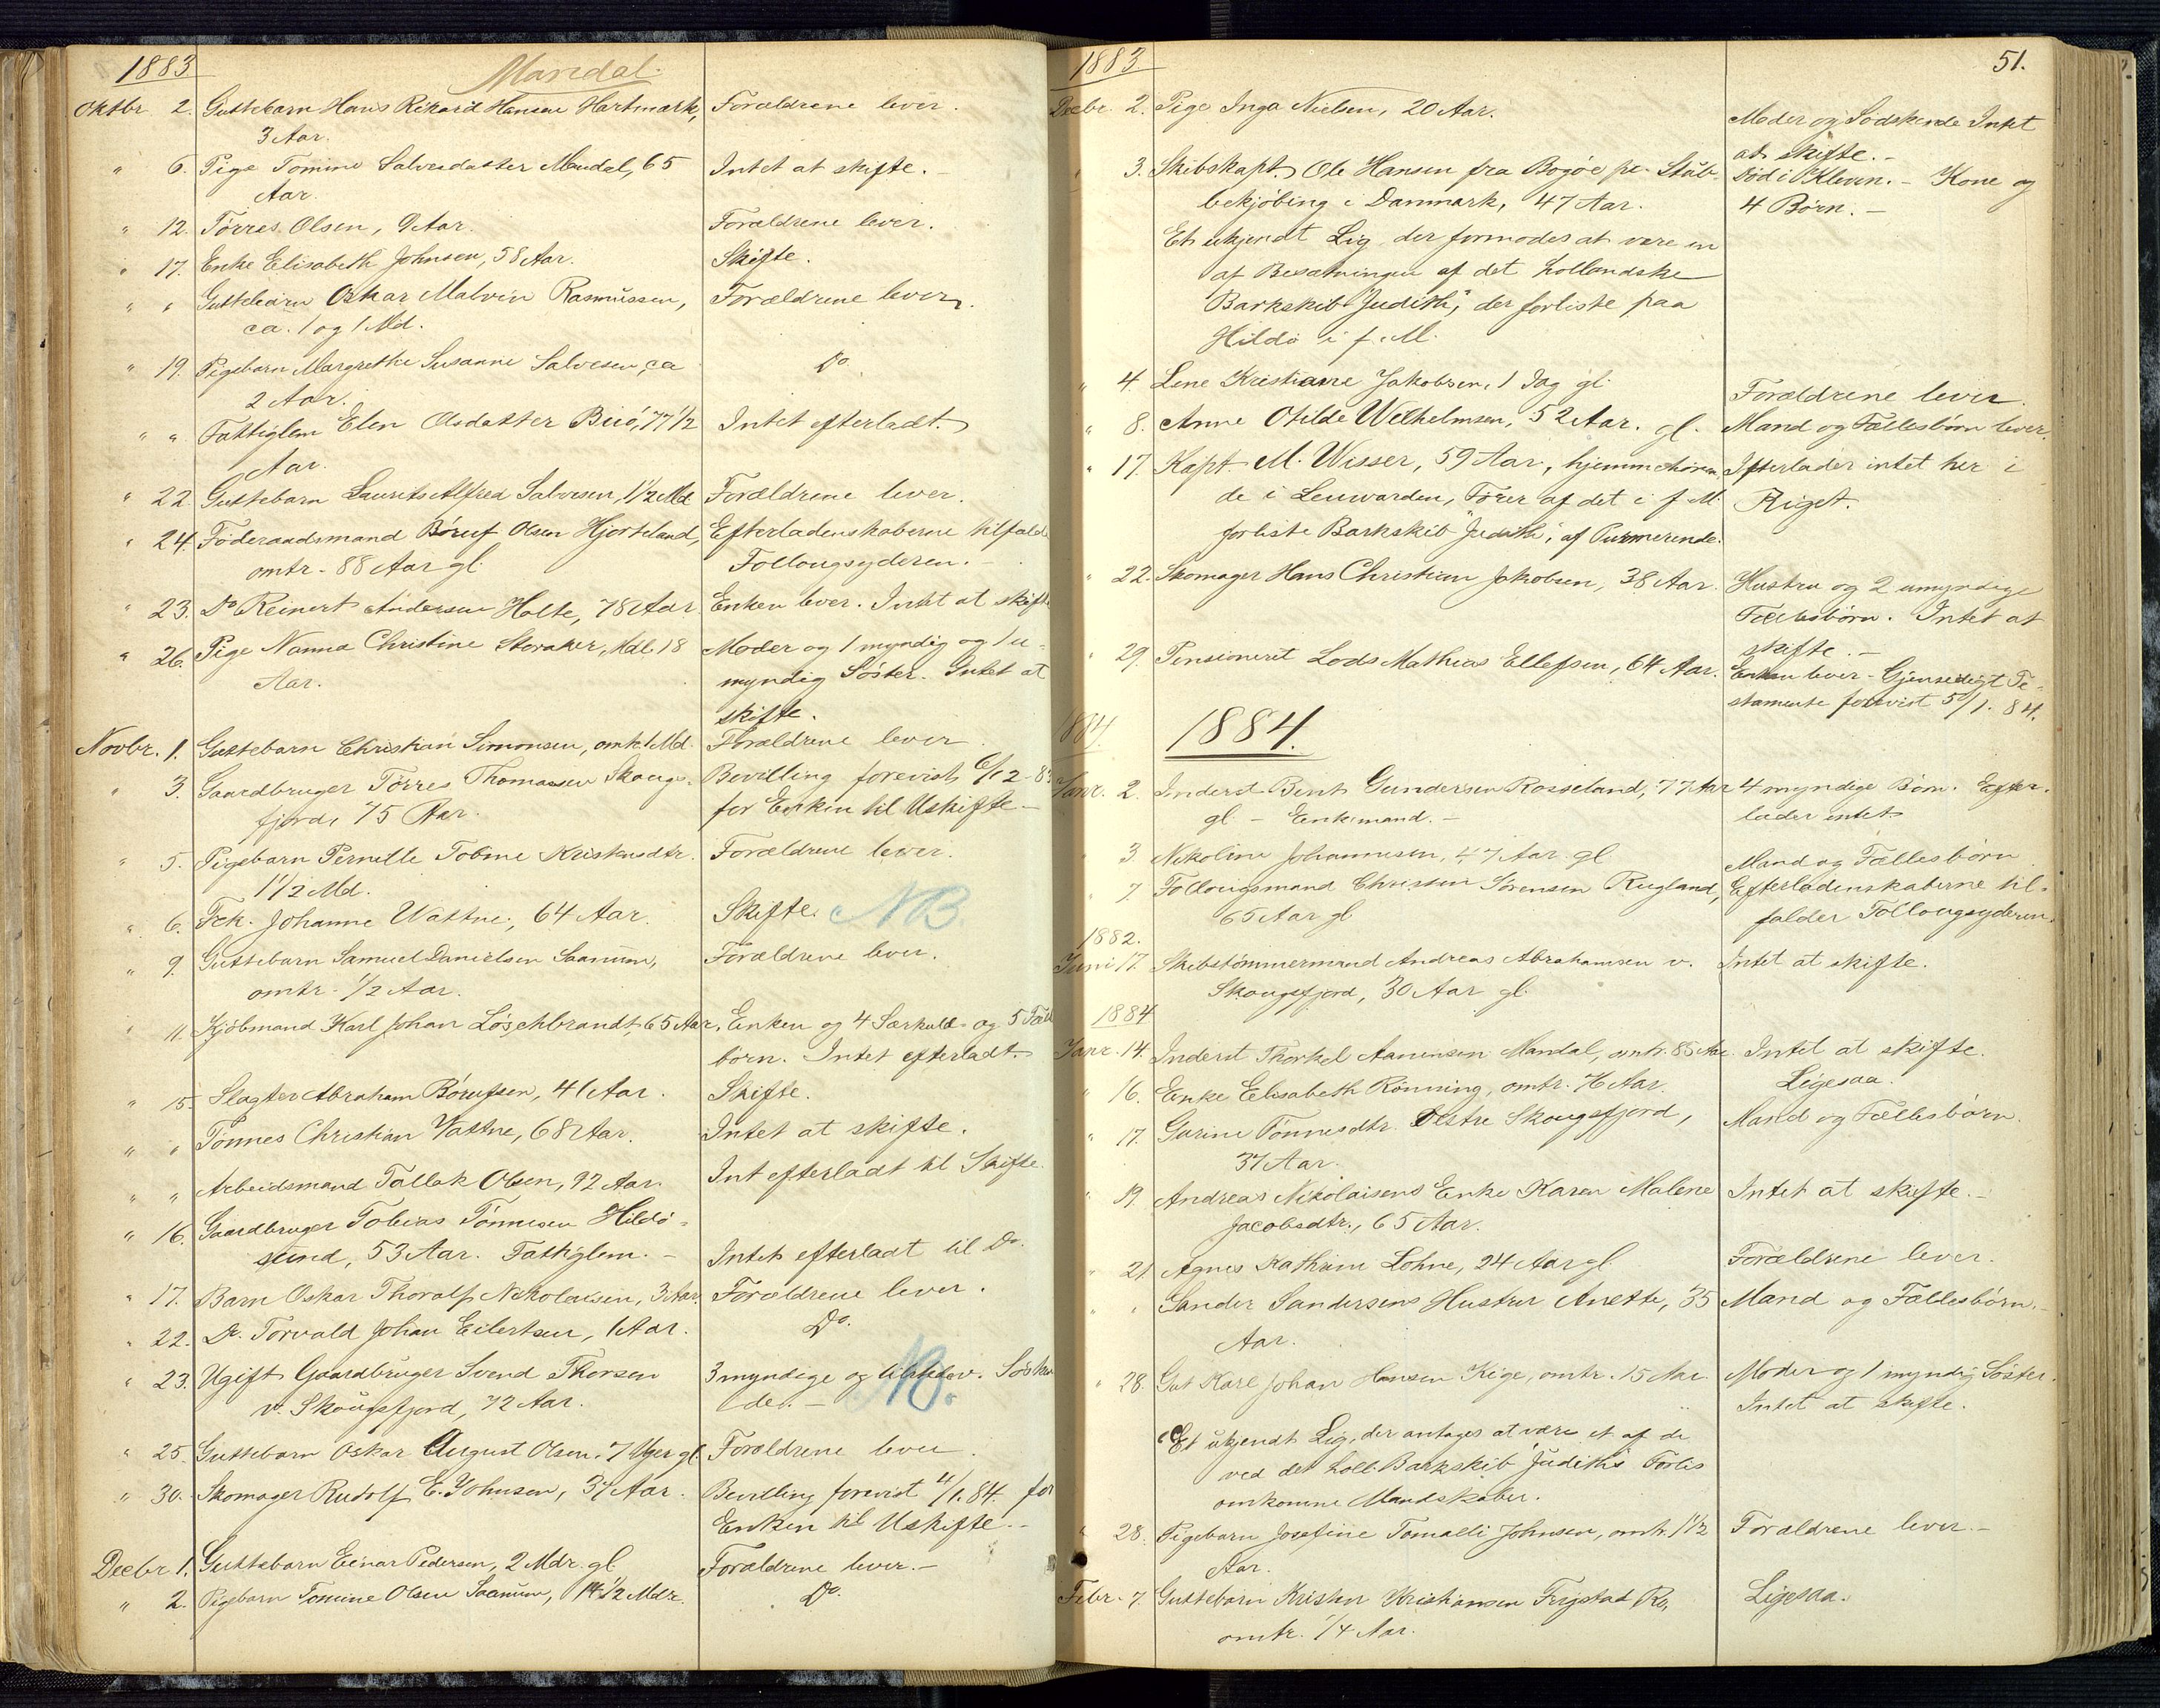 1883
Mandal.
Oktbr 2. Guttebarn Hans Rikard Hansen Hartmark, Forældrene lever.
3 Aar.
" 6. Pige Tomine Salvesdatter Mandal, 65 Intet at skifte.
Aar.
" 12. Törres Olsen, 9 Aar. Forældrene lever.
" 17. Enke Elisabeth Johnsen, 58 Aar. Skifte.
" " Guttebarn Oskar Malvin Rasmussen, Forældrene lever.
ca. 1 og 1 Md.
" 19. Pigebarn Margrethe Susanne Salvesen, ca Do
2 Aar.
" " Fattiglem Elen Olsdatter 77 1/2 Intet efterladt.
Aar.
" 22. Guttebarn Laurits Alfred Salvesen, 1 1/2 Md Forældrene lever.
" 24. Föderaadsmand Böruf Olsen Hjorteland, Efterladenskaberne tilfald
omtr. 88 Aar gl. Follougsyderen.
" 23. Do Reinert Andersen Holte, 78 Aar Enken lever. Intet at skift
" 26. Pige Nanna Christine Storaker, Mdl. 18 Moder og 1 myndig og 1 u-
Aar. myndig Söster. Intet at
skifte.
Novbr. 1. Guttebarn Christian Simonsen, omtr. 1 Md. Forældrene lever
" 3. Gaardbruger Törres Thomassen Skougs- Bevilling forevist 6/12-83
fjord, 75 Aar. for Enken til Uskifte
" 5. Pigebarn Pernille Tobine Kristensdtr. Forældrene lever.
1 1/2 Md.
" 6. Frk. Johanne Wattne, 64 Aar. Skifte. NB.
" 9. Guttebarn Samuel Danielsen Saanum, Forældrene lever.
omtr. 1/2 Aar.
" 11. Kjöbmand Karl Johan Löschbrandt, 65 Aar. Enken og 4 Særkuld- og 5 Fæll
börn. Intet efterladt.
" 15. Slagter Abraham Börufsen, 41 Aar. Skifte.
" " Tönnes Christian Vattne, 68 Aar. Intet at skifte.
" " Arbeidsmand Tallak Olsen, 92 Aar. Int efterladt til Skifte.
" 16. Gaardbruger Tobias Tönnesen Hildö-
sund, 53 Aar. Fattiglem. Intet efterladt til Do.
" 17. Barn Oskar Thoralf Nikolaisen, 3 Aar. Forældrene lever.
" 22. Do. Torvald Johan Eilertsen, 1 Aar. Do.
" 23. Ugift Gaardbruger Svend Thorsen 3 myndige og Södsken
v. Skougsfjord, 72 Aar. de. NB.
" 25. Guttebarn Oskar August Olsen, 7 Uger gl. Forældrene lever.
" 30. Skomager Rudolf E. Johnsen, 37 Aar. Bevilling forevist 4/1.84. for
Enken til Uskifte.
Decbr 1. Guttebarn Einar Pedersen, 2 Mdr. gl. Forældrene lever.
" 2. Pigebarn Tomine Olsen Saanum, 1/2 Mdr. Do.
1883. 51.
Decbr. 2. Pige Inga Nielsen, 20 Aar. Moder og Södskende Intet
at skifte.
" 3. Skibskapt. Ole Hansen fra Bogöe pr. Stub- Död i Kleven. Kone og
bekjöbing i Danmark, 47 Aar. 4 Börn.
Et ukjendt Lig der formodes at være en
af Besætningen af det hollandske
Barkskib "Judith", der forliste paa
Hildö i f. M.
" 4. Lene Kristiane Jakobsen, 1 Dag gl. Forældrene lever.
" 8. Anne Otilde Welhelmsen, 52 Aar. gl. Mand og Fællesbörn lever.
" 17. Kapt M. Wisser, 59 Aar, hjemmehören- Efterlader intet her i
de i Leuwarden, Förer af det i f. M. Riget.
forliste Barkskib "Judith", af Purmerende.
" 22. Skomager Hans Christian Jakobsen, 38 Aar. Hustru og 2 umyndige
Fællesbörn. Intet at
skifte.
" 29. Pensioneret Lods Mathias Ellefsen, 64 Aar. Enken lever. Gjensidigt Te-
stamente forevist 5/1. 84.
1884 1884.
Janr. 2. Inderst Bent Gundersen Rosseland, 77 Aar 4 myndige Börn. Efter-
gl. - Enkemand. lader intet
" 3. Nikoline Johannesen, 47 Aar gl Mand og Fællesbörn
" 7. Follougsmand Christen Sörensen Rugland, Efterladenskaberne til-
65 Aar gl falder Follougsyderen.
1882.
Juni 17. Skibstömmermand Andreas Abrahamsen v. Intet at skifte.
Skougsfjord, 30 Aar gl.
1884
Janr. 14. Inderst Thorkel Aanensen Mandal, omtr. 85 Aar. Intet at skifte.
" 16. Enke Elisabeth Rönning, omtr. 76 Aar. Ligesaa.
" 17. Gurine Tönnesdtr. Östre Skougsfjord, Mand og Fællesbörn.
37 Aar.
" 19. Andreas Nikolaisens Enke Karen Malene Intet at skifte.
Jacobsdtr., 65 Aar.
" 21 Agnes Kathrine Lohne, 24 Aar gl Forældrene lever.
" " Sander Sandersens Hustru Anette, 35 Mand og Fællesbörn.
Aar.
" 28. Gut Karl Johan Hansen Kige, omtr. 15 Aar. Moder og 1 myndig Söster.
Intet at skifte.
Et ukjendt Lig, der antages at være et af de
ved det holl. Barkskib "Judiths" Forlis
omkomne Mandskaber.
" 28. Pigebarn Josefine Tomalli Johnsen, omtr. 1 1/2 Forældrene lever.
Aar.
Febr. 7. Guttebarn Kristen Kristiansen Frigstad Ligesaa.
omtr. 1/4 Aar.